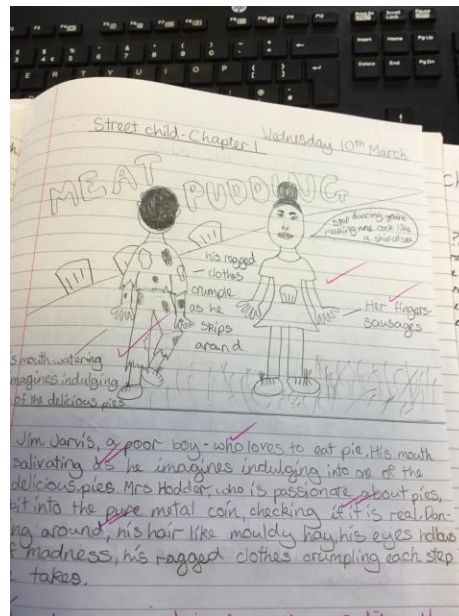 Street child - Chapter 1
Wednesday 10th March
MEAT PUDDING
stop dancing you're
making me rock like
a ship at sea
his ragged
clothes
crumple
as he
skips
around
Her fingers-
sausages
s mouth watering
magines indulging
of the delicious pies
Jim Jarvis, a poor boy - who loves to eat pie. His mouth
salivating as he imagines indulging into one of the
delicious pies. Mrs Hodder, who is passionate about pies,
bit into the pure metal coin, checking if it is real. Dan-
ng around, his hair like mouldy hay, his eyes hollows
f madness, his ragged clothes crumpling each step
takes.